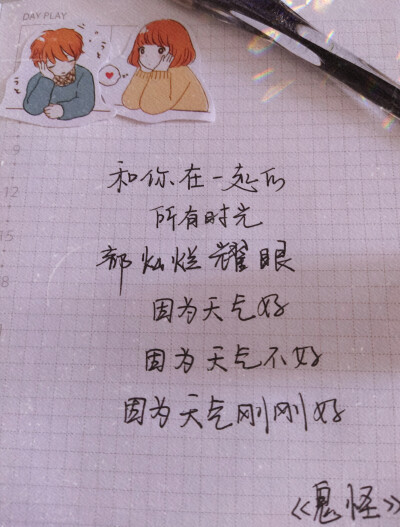 DAY PLAY
和你在一起的
所有时光
都灿烂耀眼
因为天气好
因为天气不好
因为天气刚刚好
《鬼怪》
9
12
15
8